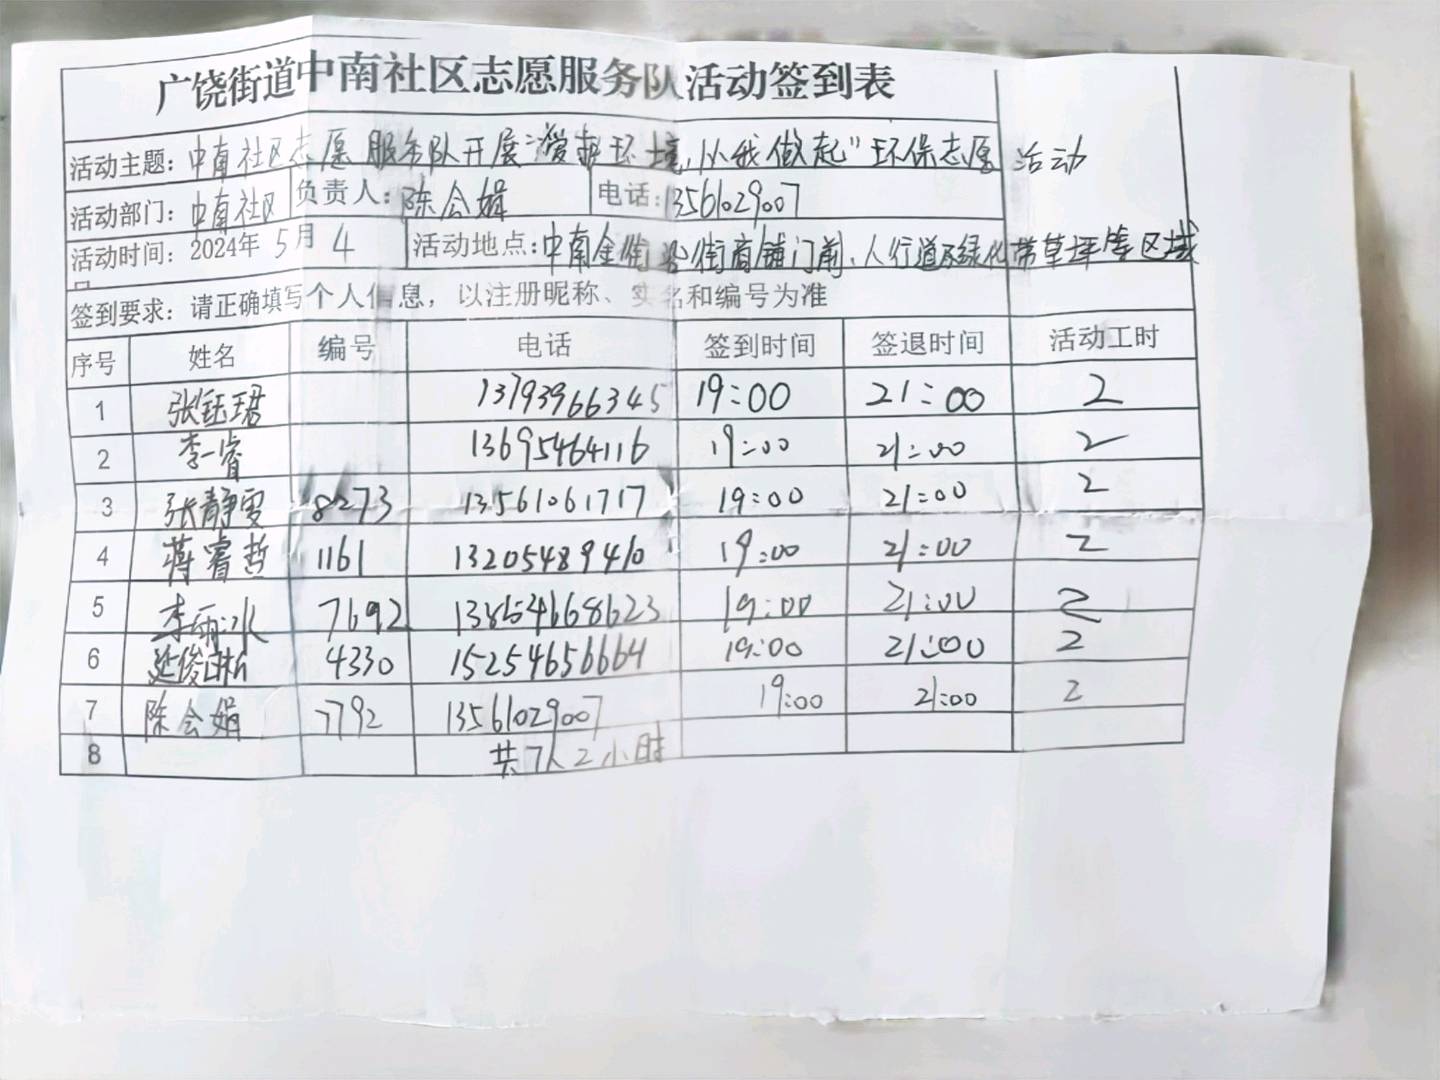 广饶街道中南社区志愿服务队活动签到表
活动主题：中南社区志愿服务队开展“爱护环境，从我做起”环保志愿活动
活动部门：中南社区 负责人：陈会娟 电话：13561029007
活动时间：2024年5月4 活动地点：中南金街沿街商铺门前、人行道及绿化带草坪等区域
日
签到要求：请正确填写个人信息，以注册昵称、实名和编号为准
序号 姓名 编号 电话 签到时间 签退时间 活动工时
1 张钰珺 13793966345 19:00 21:00 2
2 李一睿 13695464116 19:00 21:00 2
3 张静雯 8273 13561061717 19:00 21:00 2
4 蒋睿哲 1161 13205489410 19:00 21:00 2
5 李雨冰 7692 138654668623 19:00 21:00 2
6 延俊 4330 15254656664 19:00 21:00 2
7 陈会娟 7792 13561029007 19:00 21:00 2
8 共7人2小时